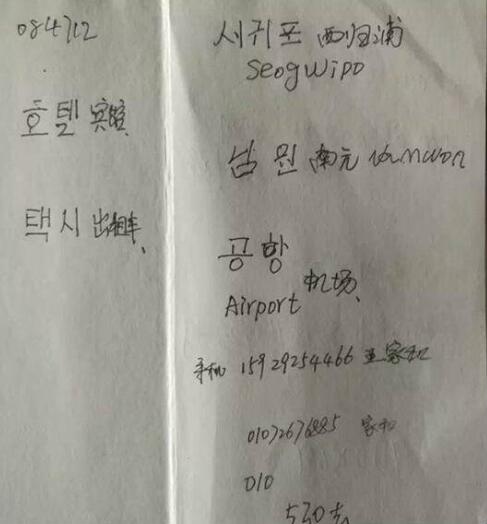 084712
호텔 宾馆
택시 出租车
서귀포 西归浦
Seogwipo
남원 南元 Namwon
공항
Airport 机场
手机 15929254466 王家和
01072676885 家和
010
530去